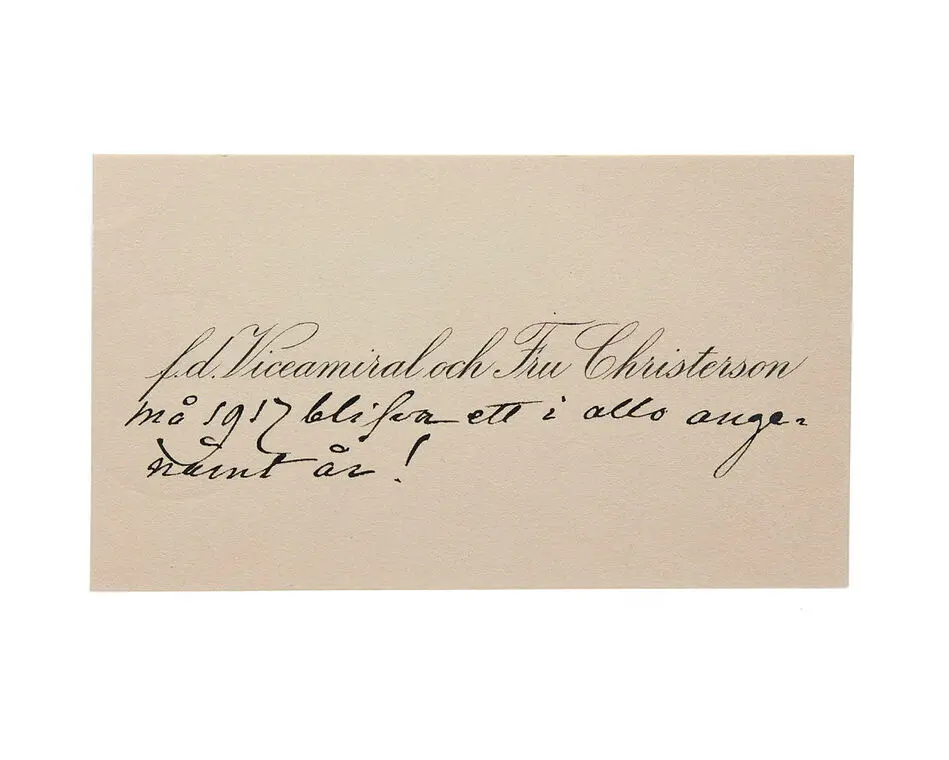 f.d. Viceamiral och Fru Christerson
må 1917 blifva ett i allo ange-
nämt år!